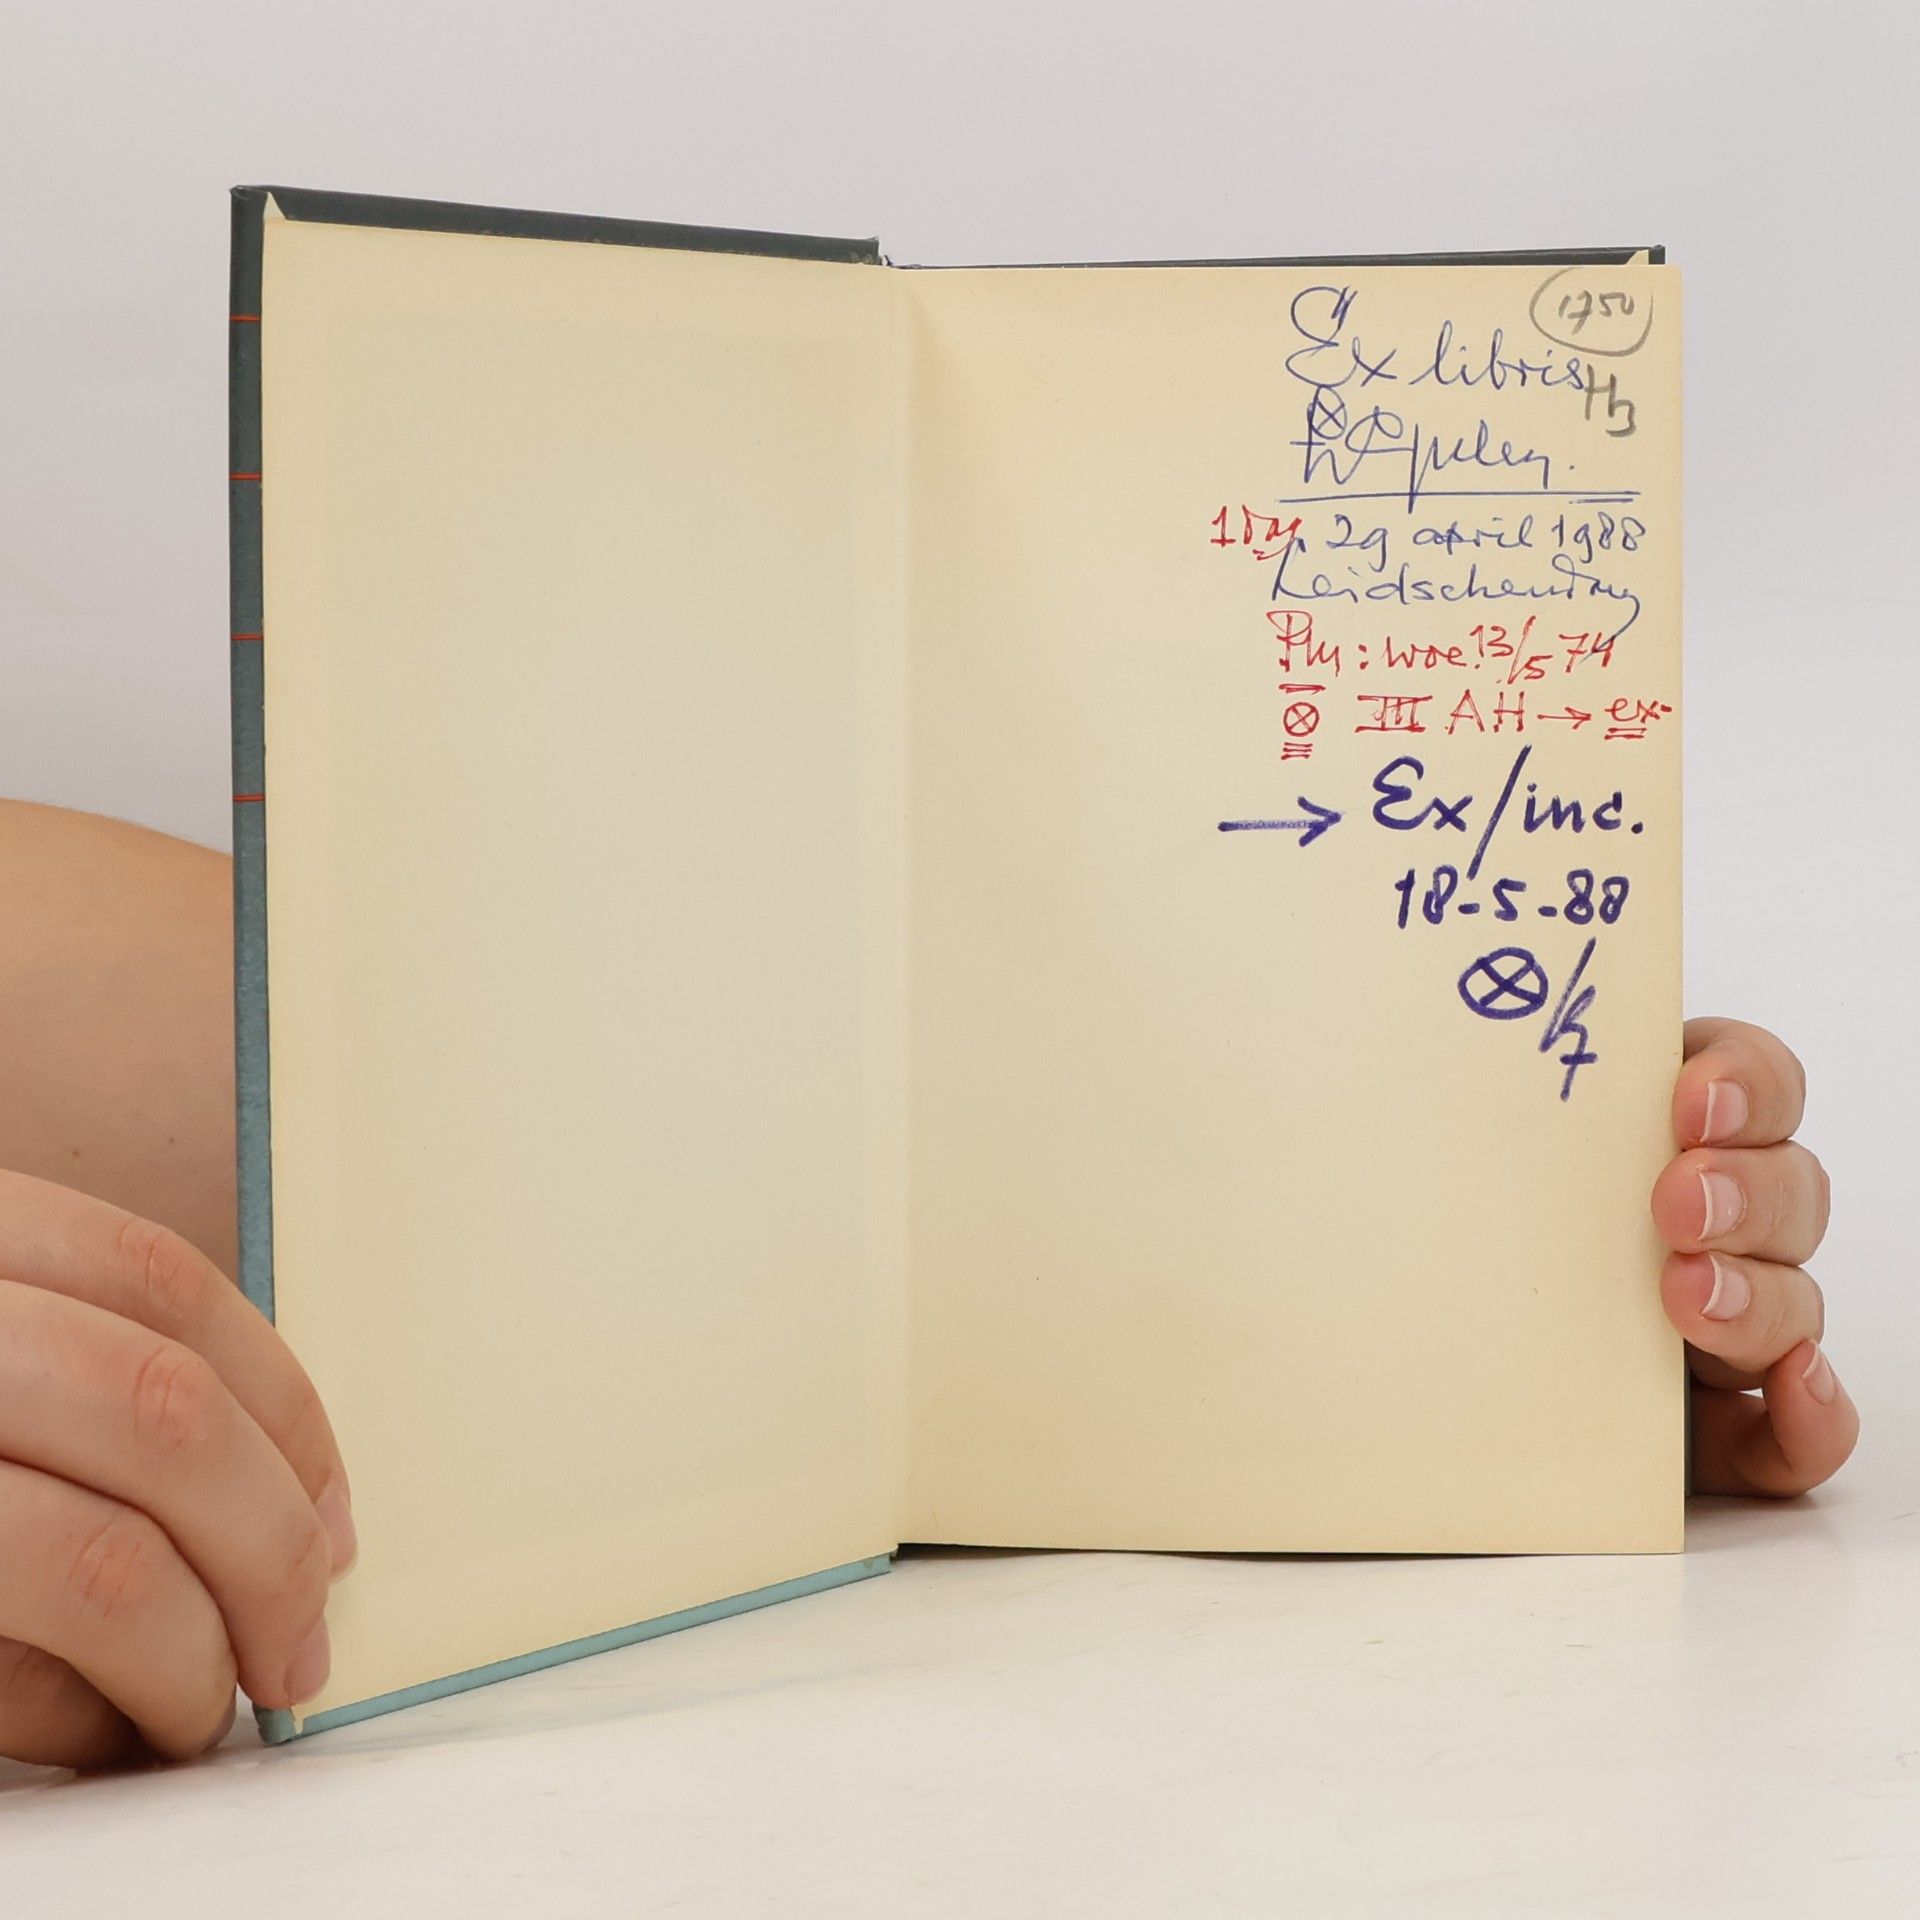 1750
Ex libris
H3
29 april 1988
Leidschendam
: woe. 13/5 74
III AH → ex.
→ Ex/inc.
18-5-88